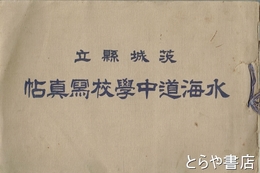 茨城縣立
水海道中學校寫真帖
とらや書店